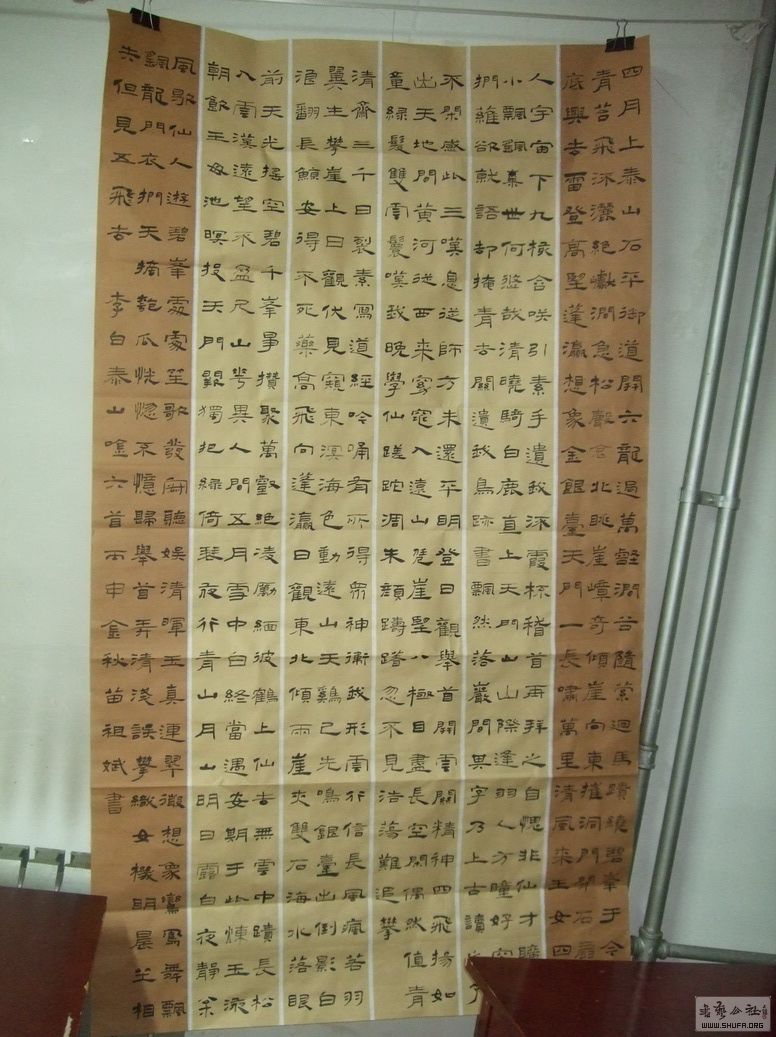 四月上泰山石平御道開六龍過萬壑澗谷隨縈迴馬蹟繞碧峯于今
青苔飛流灑絕巘澗急松聲哀北眺崖嶂奇傾崖向東摧洞門閉石扇
底興云雷登高望蓬瀛想象金銀臺天門一長嘯萬里清風來玉女四
人宇宙下九垓含咲引素手遺我流霞杯稽首再拜之自愧非仙才曠
小飄颻棄世何悠哉清曉騎白鹿直上天門山山際逢羽人方瞳好容
捫蘿欲就語却掩青云關遺我鳥跡書飄然落巖間其字乃上古讀之了
不閑感此三嘆息從師方未還平明登日觀舉首開雲關精神四飛揚如
出天地間黃河從西來窈窕入遠山憑崖望八極目盡長空閑偶然值青
童綠髮雙雲鬟嘆我晚學仙蹉跎凋朱顏躊躇忽不見浩蕩難追攀
清齋三千日裂素寫道經吟誦有所得眾神衛我形雲行信長風颯若羽
翼生攀崖上日觀伏見窺東溟海色動遠山天鷄已先鳴銀臺出倒影白
浪翻長鯨安得不死藥高飛向蓬瀛日觀東北傾兩崖夾雙石海水落眼
前天光搖空碧千峯爭攢聚萬壑絕凌厲緬彼鶴上仙去無雲中蹟長松
入雲漢遠望不盈尺山華異人間五月雪中白終當遇安期于此煉玉液
朝飲王母池暝投天門關獨抱綠綺琴夜行青山月山明月露白夜靜松
風歇仙人遊碧峯處處笙歌發寂聽娛清暉玉真連翠微想象鸞鳳舞飄
颻龍虎衣捫天摘匏瓜恍惚不憶歸舉首弄清淺誤攀織女機明晨坐相
失但見五飛云 李白泰山唫六首丙申金秋苗祖斌書
書藝公社
WWW.SHUFA.ORG